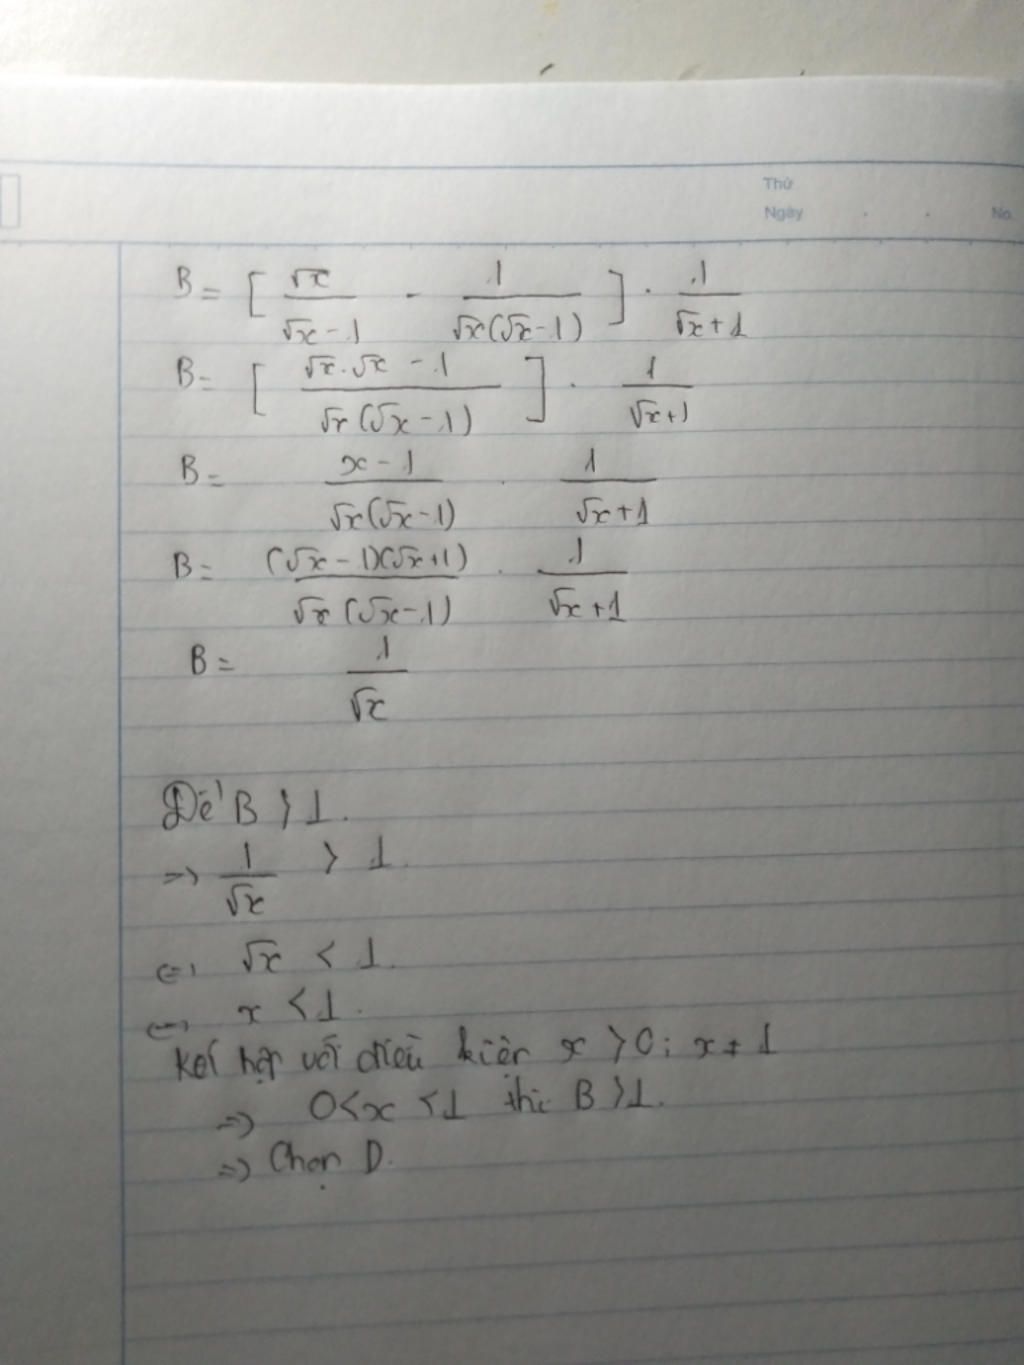 Thứ
Ngày . . No.
B = [ √x / (√x - 1) - 1 / (√x(√x - 1)) ] . 1 / (√x + 1)
B = [ (√x . √x - 1) / (√x(√x - 1)) ] . 1 / (√x + 1)
B = (x - 1) / (√x(√x - 1)) . 1 / (√x + 1)
B = (√x - 1)(√x + 1) / (√x(√x - 1)) . 1 / (√x + 1)
B = 1 / √x
Để B > 1.
=> 1 / √x > 1.
<=> √x < 1.
<=> x < 1.
Kết hợp với điều kiện x > 0; x ≠ 1
=> 0 < x < 1 thì B > 1.
=> Chọn D.